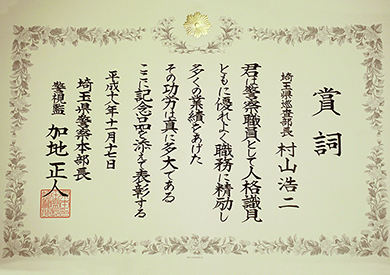 賞詞
埼玉県巡査部長
村山浩二
君は警察職員として人格識見
ともに優れよく職務に精励し
多くの業績をあげた
その功労は真に多大である
ここに記念品を添えて表彰する
平成十八年十一月十七日
埼玉県警察本部長
警視監 加地正人